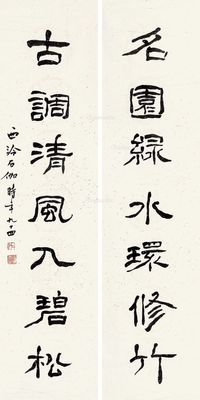 名園綠水環修竹
古調清風入碧松
西泠石伽時年九十四